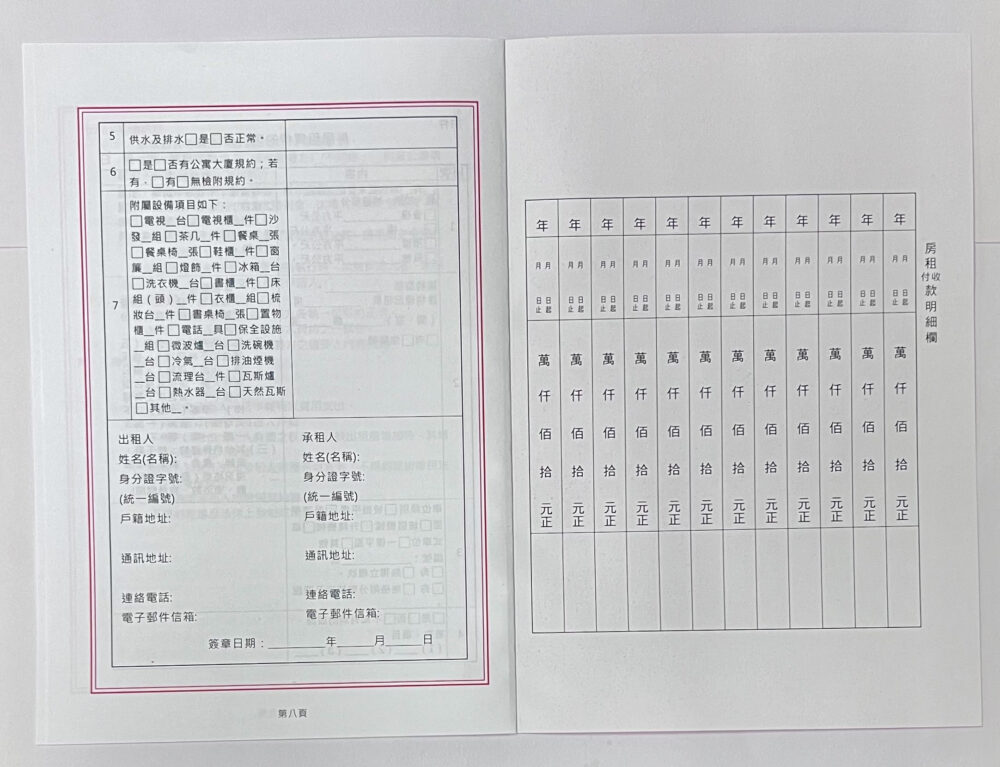 5 供水及排水□是□否正常。
6 □是□否有公寓大廈規約；若
有，□有□無檢附規約。
7 附屬設備項目如下：
□電視__台□電視櫃__件□沙
發__組□茶几__件□餐桌__張
□餐桌椅__張□鞋櫃__件□窗
簾__組□燈飾__件□冰箱__台
□洗衣機__台□書櫃__件□床
組（頭）__件□衣櫃__組□梳
妝台__件□書桌椅__張□置物
櫃__件□電話__具□保全設施
__組□微波爐__台□洗碗機
__台□冷氣__台□排油煙機
__台□流理台__件□瓦斯爐
__台□熱水器__台□天然瓦斯
□其他__。
出租人
姓名(名稱):
身分證字號:
(統一編號)
戶籍地址:
通訊地址:
連絡電話:
電子郵件信箱:
承租人
姓名(名稱):
身分證字號:
(統一編號)
戶籍地址:
通訊地址:
連絡電話:
電子郵件信箱:
簽章日期：______年_____月_____日
第八頁
房租付收款明細欄
年 年 年 年 年 年 年 年 年 年 年 年
月月 月月 月月 月月 月月 月月 月月 月月 月月 月月 月月 月月
日止 日起 日止 日起 日止 日起 日止 日起 日止 日起 日止 日起 日止 日起 日止 日起 日止 日起 日止 日起 日止 日起 日止 日起
萬 萬 萬 萬 萬 萬 萬 萬 萬 萬 萬 萬
仟 仟 仟 仟 仟 仟 仟 仟 仟 仟 仟 仟
佰 佰 佰 佰 佰 佰 佰 佰 佰 佰 佰 佰
拾 拾 拾 拾 拾 拾 拾 拾 拾 拾 拾 拾
元正 元正 元正 元正 元正 元正 元正 元正 元正 元正 元正 元正